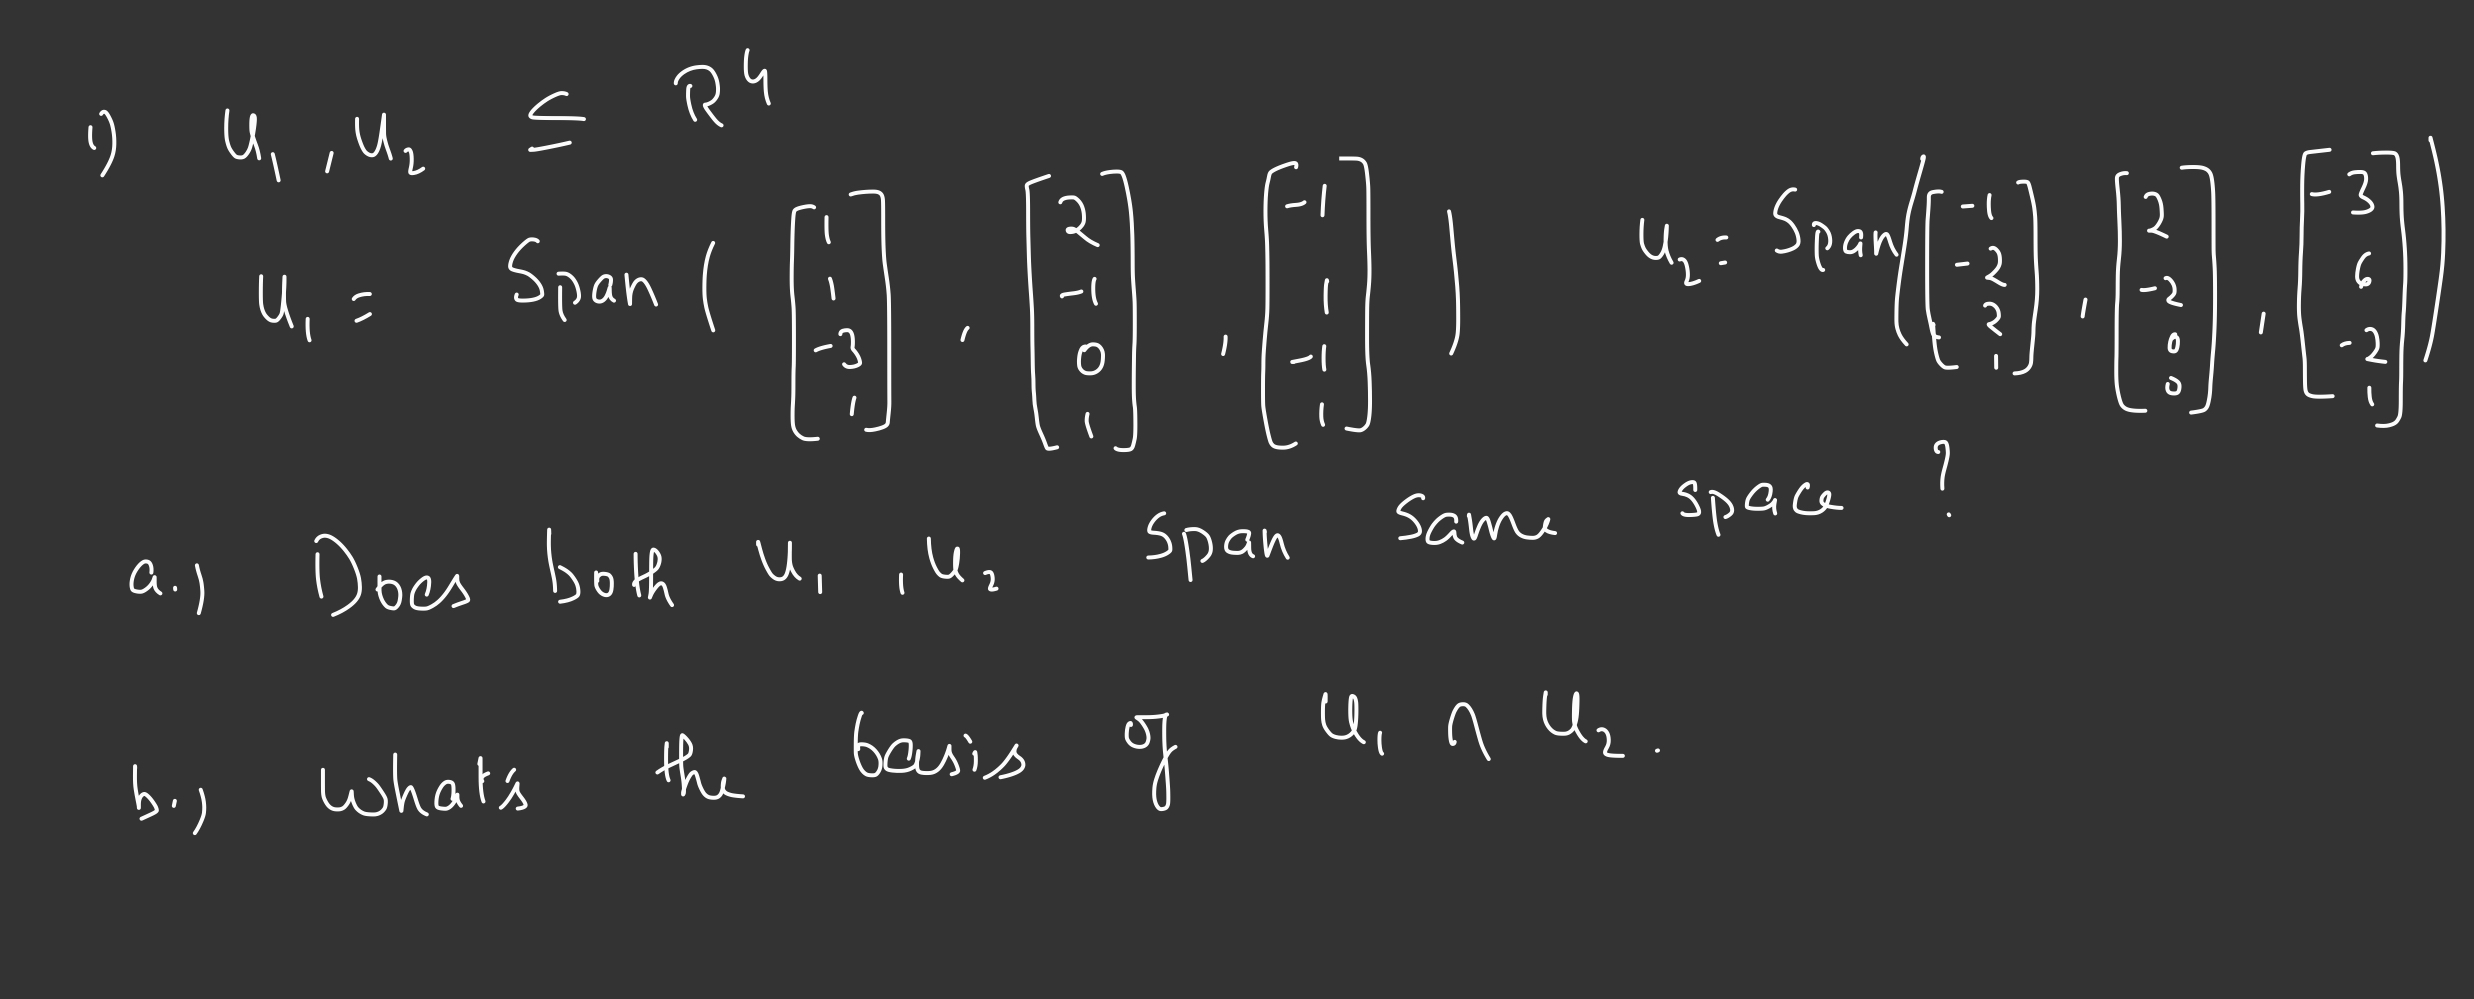 1) U₁, U₂ ⊆ R⁴
U₁ = Span ( [1 1 -3 1], [2 -1 0 1], [-1 1 -1 1] ) U₂ = Span ( [-1 -2 2 1], [2 -2 0 0], [-3 6 -2 1] )
a.) Does both U₁, U₂ span same space ?
b.) What's the basis of U₁ ∩ U₂.